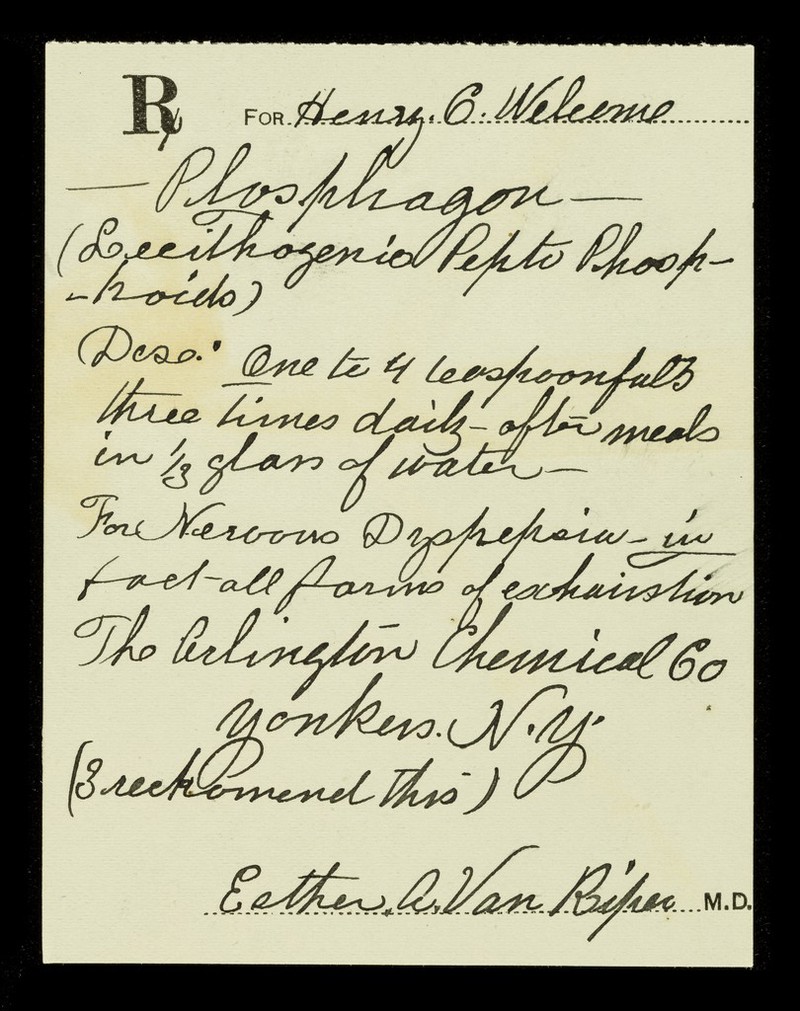 ℞ FOR Henry. C. Welcome
— Phosphagon —
(Lecithogenic Pepto Phosp-
-hoids)
Dose: One to 4 teaspoonfulls
three times daily - after meals
in 1/3 glass of water —
For Nervous Dyspepsia - in
fact - all forms of exhaustion
The Arlington Chemical Co
Yonkers. N.Y.
(I reckomend this)
Esther. A. Van Riper M.D.